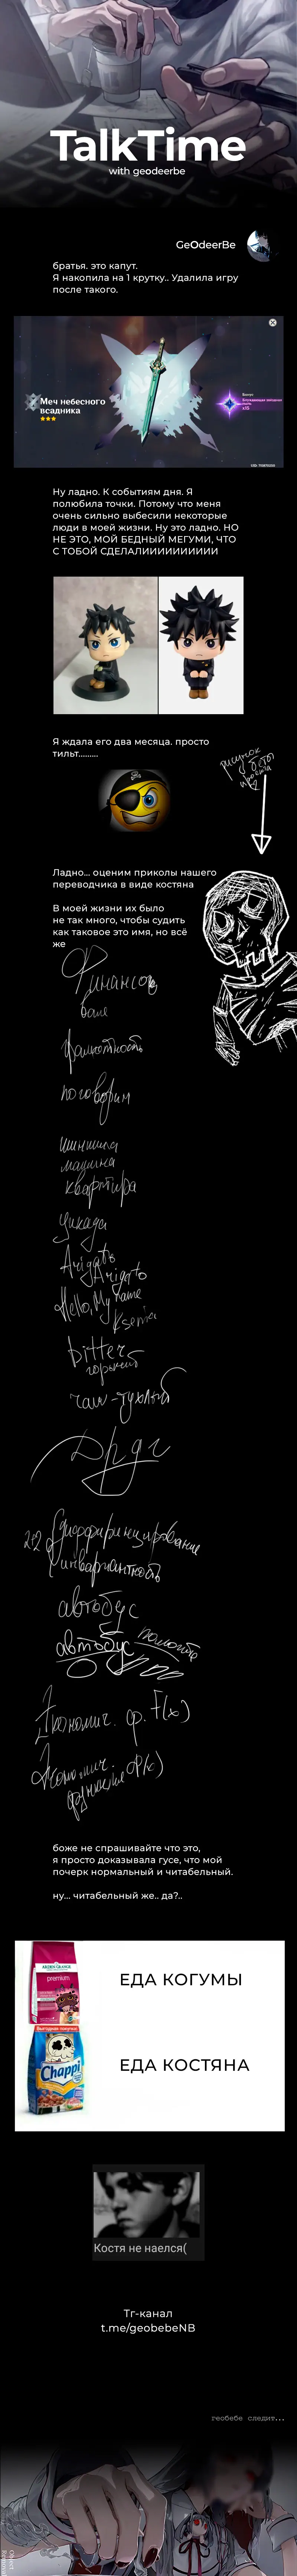 TalkTime
with geodeerbe
GeOdeerBe
братья. это капут.
Я накопила на 1 крутку.. Удалила игру
после такого.
Меч небесного
всадника
x15
Ну ладно. К событиям дня. Я
полюбила точки. Потому что меня
очень сильно выбесили некоторые
люди в моей жизни. Ну это ладно. НО
НЕ ЭТО, МОЙ БЕДНЫЙ МЕГУМИ, ЧТО
С ТОБОЙ СДЕЛАЛИИИИИИИИИИ
Я ждала его два месяца. просто
тильт.........
рисунок
Ладно... оценим приколы нашего
переводчика в виде костяна
В моей жизни их было
не так много, чтобы судить
как таковое это имя, но всё
же
Финансов
грамотность
поговорим
шиншилла
машина
квартира
цикада
Arigato
Arigato
Hello, My name
Ksenia
bitter
горький
Друг
2:2 дифференцирование
инвариантность
автобус
автобус
Экономич. ф. F(x)
Экономич.
функция
боже не спрашивайте что это,
я просто доказывала гусе, что мой
почерк нормальный и читабельный.
ну... читабельный же.. да?..
premium
ЕДА КОГУМЫ
Chappi
ЕДА КОСТЯНА
Костя не наелся(
Тг-канал
t.me/geobebeNB
геобебе следит...